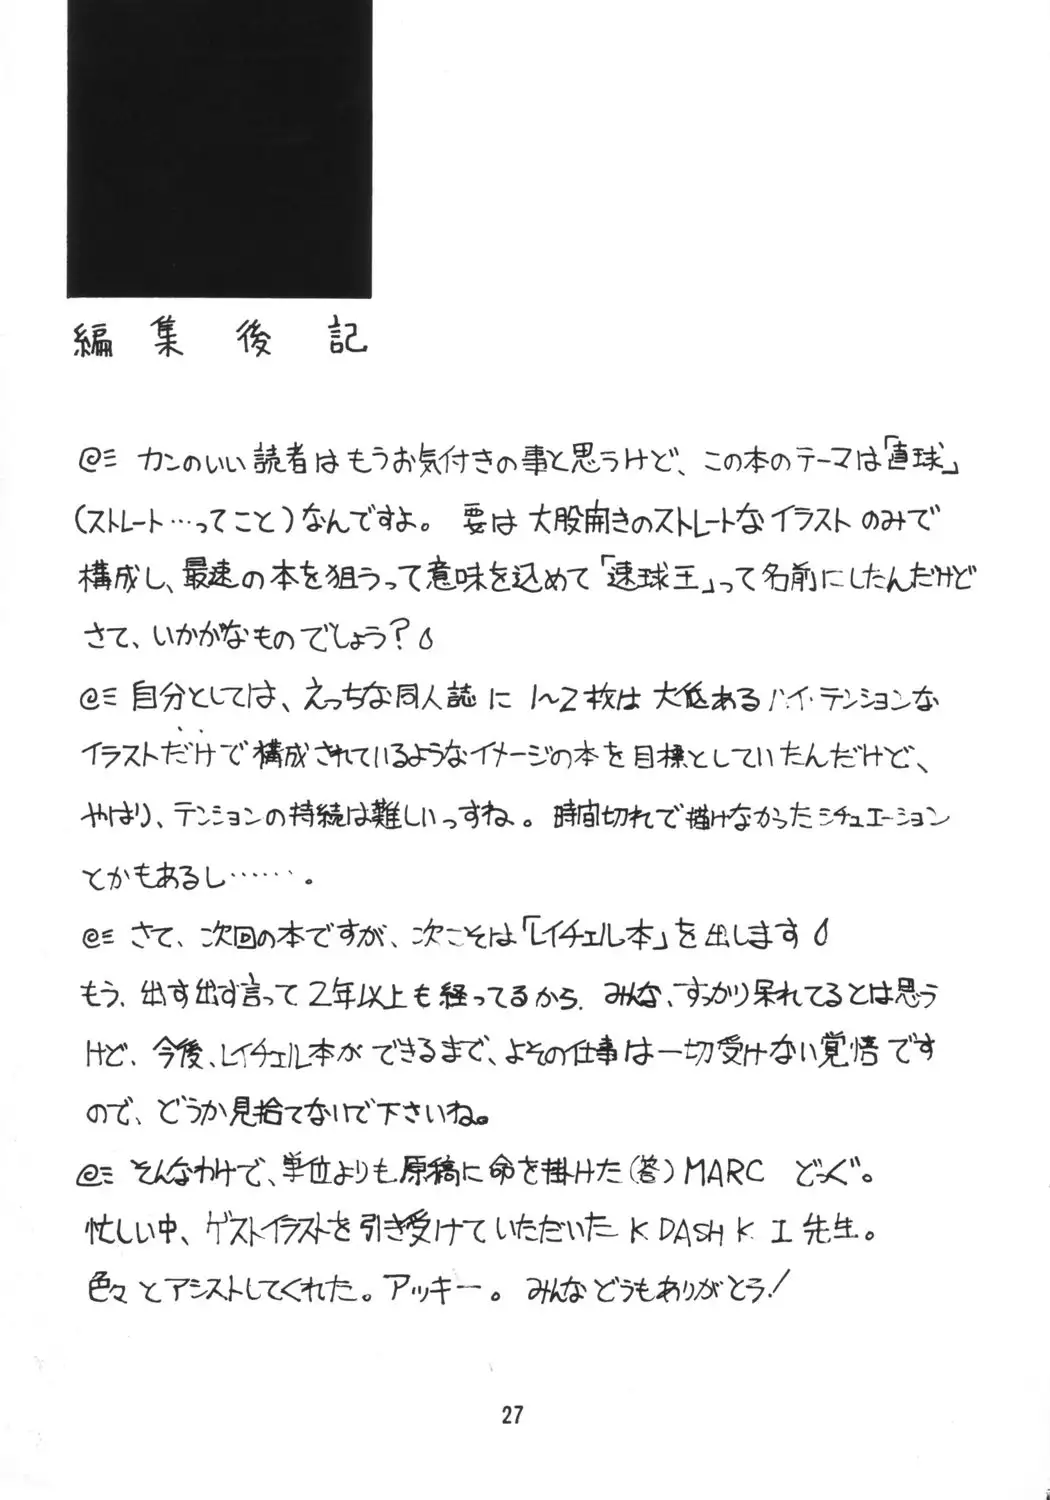 編集後記
@ミ カンのいい読者はもうお気付きの事と思うけど、この本のテーマは「直球」
(ストレート…ってこと)なんですよ。要は大股開きのストレートなイラストのみで
構成し、最速の本を狙うって意味を込めて「速球王」って名前にしたんだけど
さて、いかがなものでしょう?
@ミ 自分としては、えっちな同人誌に1~2枚は大低あるハイ・テンションな
イラストだけで構成されているようなイメージの本を目標としていたんだけど、
やはり、テンションの持続は難しいっすね。時間切れで描けなかったシチュエーション
とかもあるし……。
@ミ さて、次回の本ですが、次こそは「レイチェル本」を出します
もう、出す出す言って2年以上も経ってるから、みんな、すっかり呆れてるとは思う
けど、今後、レイチェル本ができるまで、よその仕事は一切受けない覚悟です
ので、どうか見捨てないで下さいね。
@ミ そんなわけで、単位よりも原稿に命を掛けた(答)MARC どっぐ。
忙しい中、ゲストイラストを引き受けていただいたK DASH K I 先生。
色々とアシストしてくれた。アッキー。みんなどうもありがとう!
27